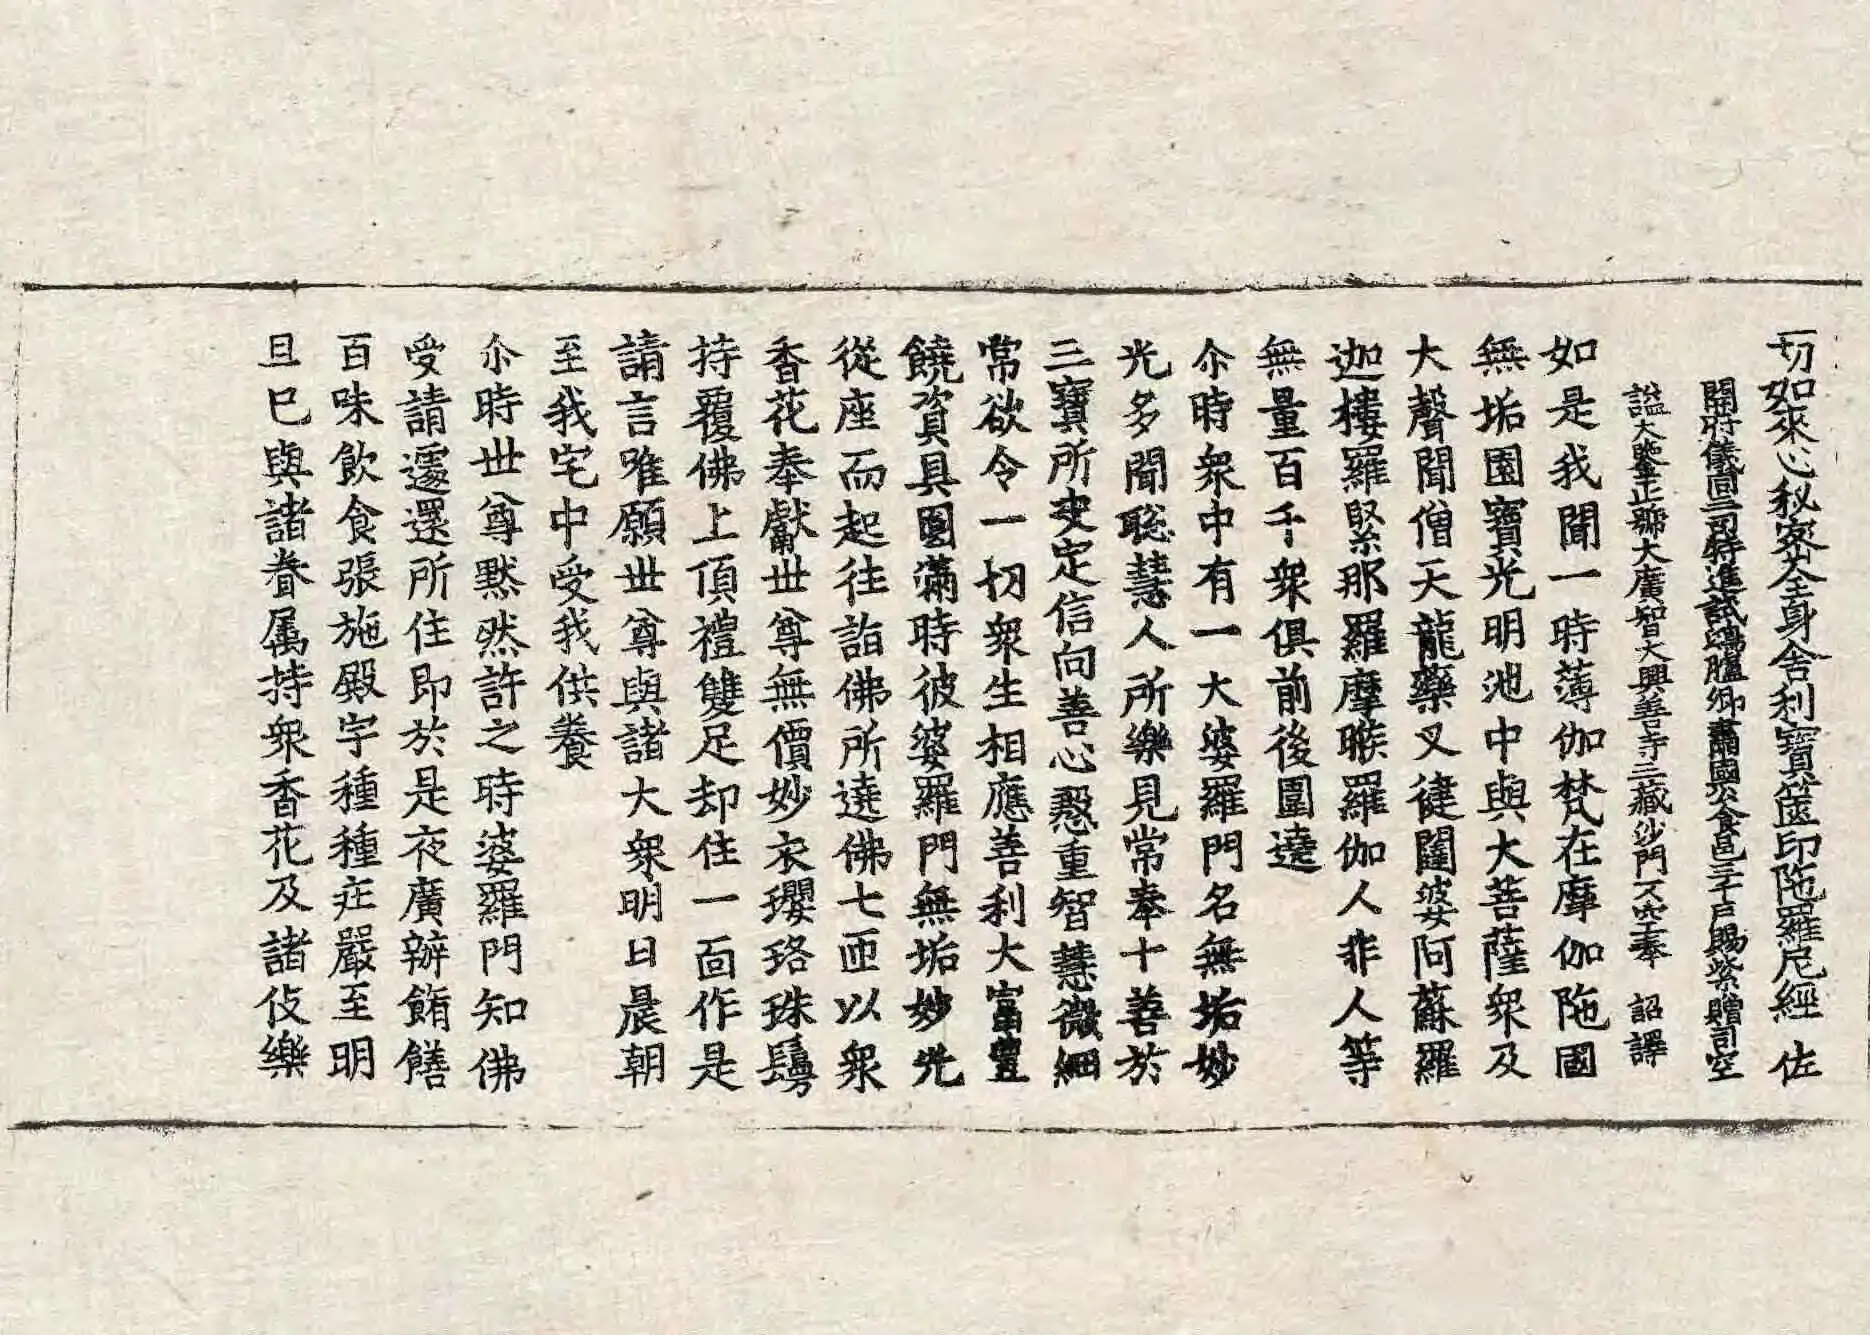 一切如來心秘密全身舍利寶篋印陁羅尼經 佐
開府儀同三司特進試鴻臚卿肅國公食邑三千戶賜紫贈司空
謚大鑒正號大廣智大興善寺三藏沙門不空奉 詔譯
如是我聞一時薄伽梵在摩伽陁國
無垢園寶光明池中與大菩薩衆及
大聲聞僧天龍藥叉健闥婆阿蘇羅
迦樓羅緊那羅摩睺羅伽人非人等
無量百千衆俱前後圍遶
尒時衆中有一大婆羅門名無垢妙
光多聞聡慧人所樂見常奉十善於
三寶所決定信向善心慇重智慧微細
常欲令一切衆生相應善利大富豐
饒資具圓滿時彼婆羅門無垢妙光
從座而起往詣佛所遶佛七匝以衆
香花奉獻世尊無價妙衣瓔珞珠鬘
持覆佛上頂禮雙足却住一面作是
請言唯願世尊與諸大衆明日晨朝
至我宅中受我供養
尒時世尊黙然許之時婆羅門知佛
受請遽還所住即於是夜廣辦餚饍
百味飲食張施殿宇種種庄嚴至明
旦已與諸眷属持衆香花及諸伎樂